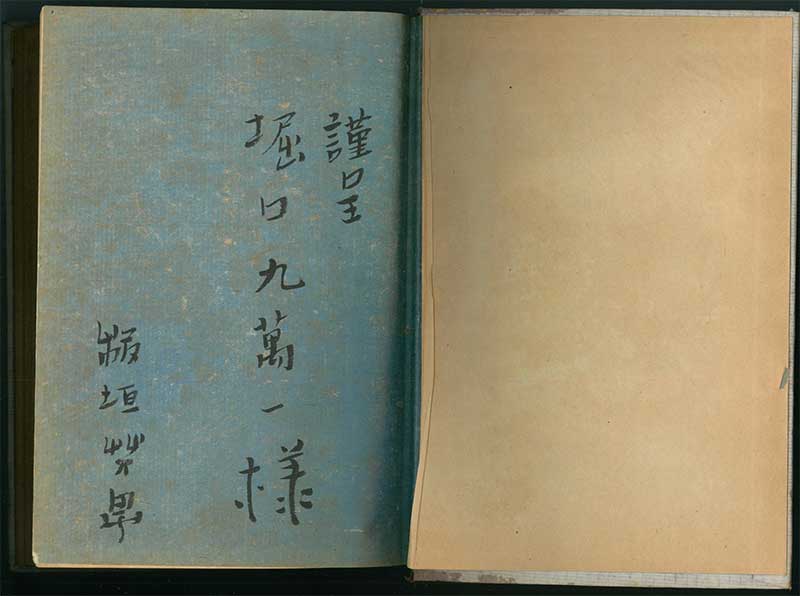 謹呈
堀口九萬一様
板垣